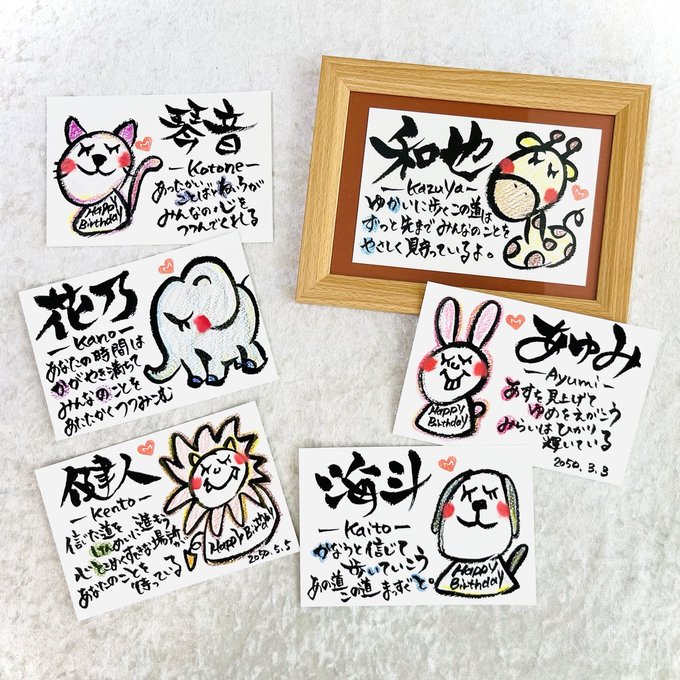 琴音
—Kotone—
あったかい
ことばとねいろが
みんなの心を
つつんでくれる
Happy
Birthday
和也
—Kazuya—
ゆかいに歩くこの道は
ずっと先までみんなのことを
やさしく見守っているよ。
花乃
—Kano—
あなたの時間は
かがやき満ちて
みんなのことを
あたたかくつつみこむ
あゆみ
—Ayumi—
あすを見上げて
ゆめをえがこう
みらいはひかり
輝いている
2050.3.3
Happy
Birthday
健人
—Kento—
信じた道を
けんめいに進もう
心ときめくすてきな場所が
あなたのことを
待ってる
Happy Birthday
2050.5.5
海斗
—Kaito—
かなうと信じて
歩いていこう
あの道この道まっすぐと。
Happy
Birthday